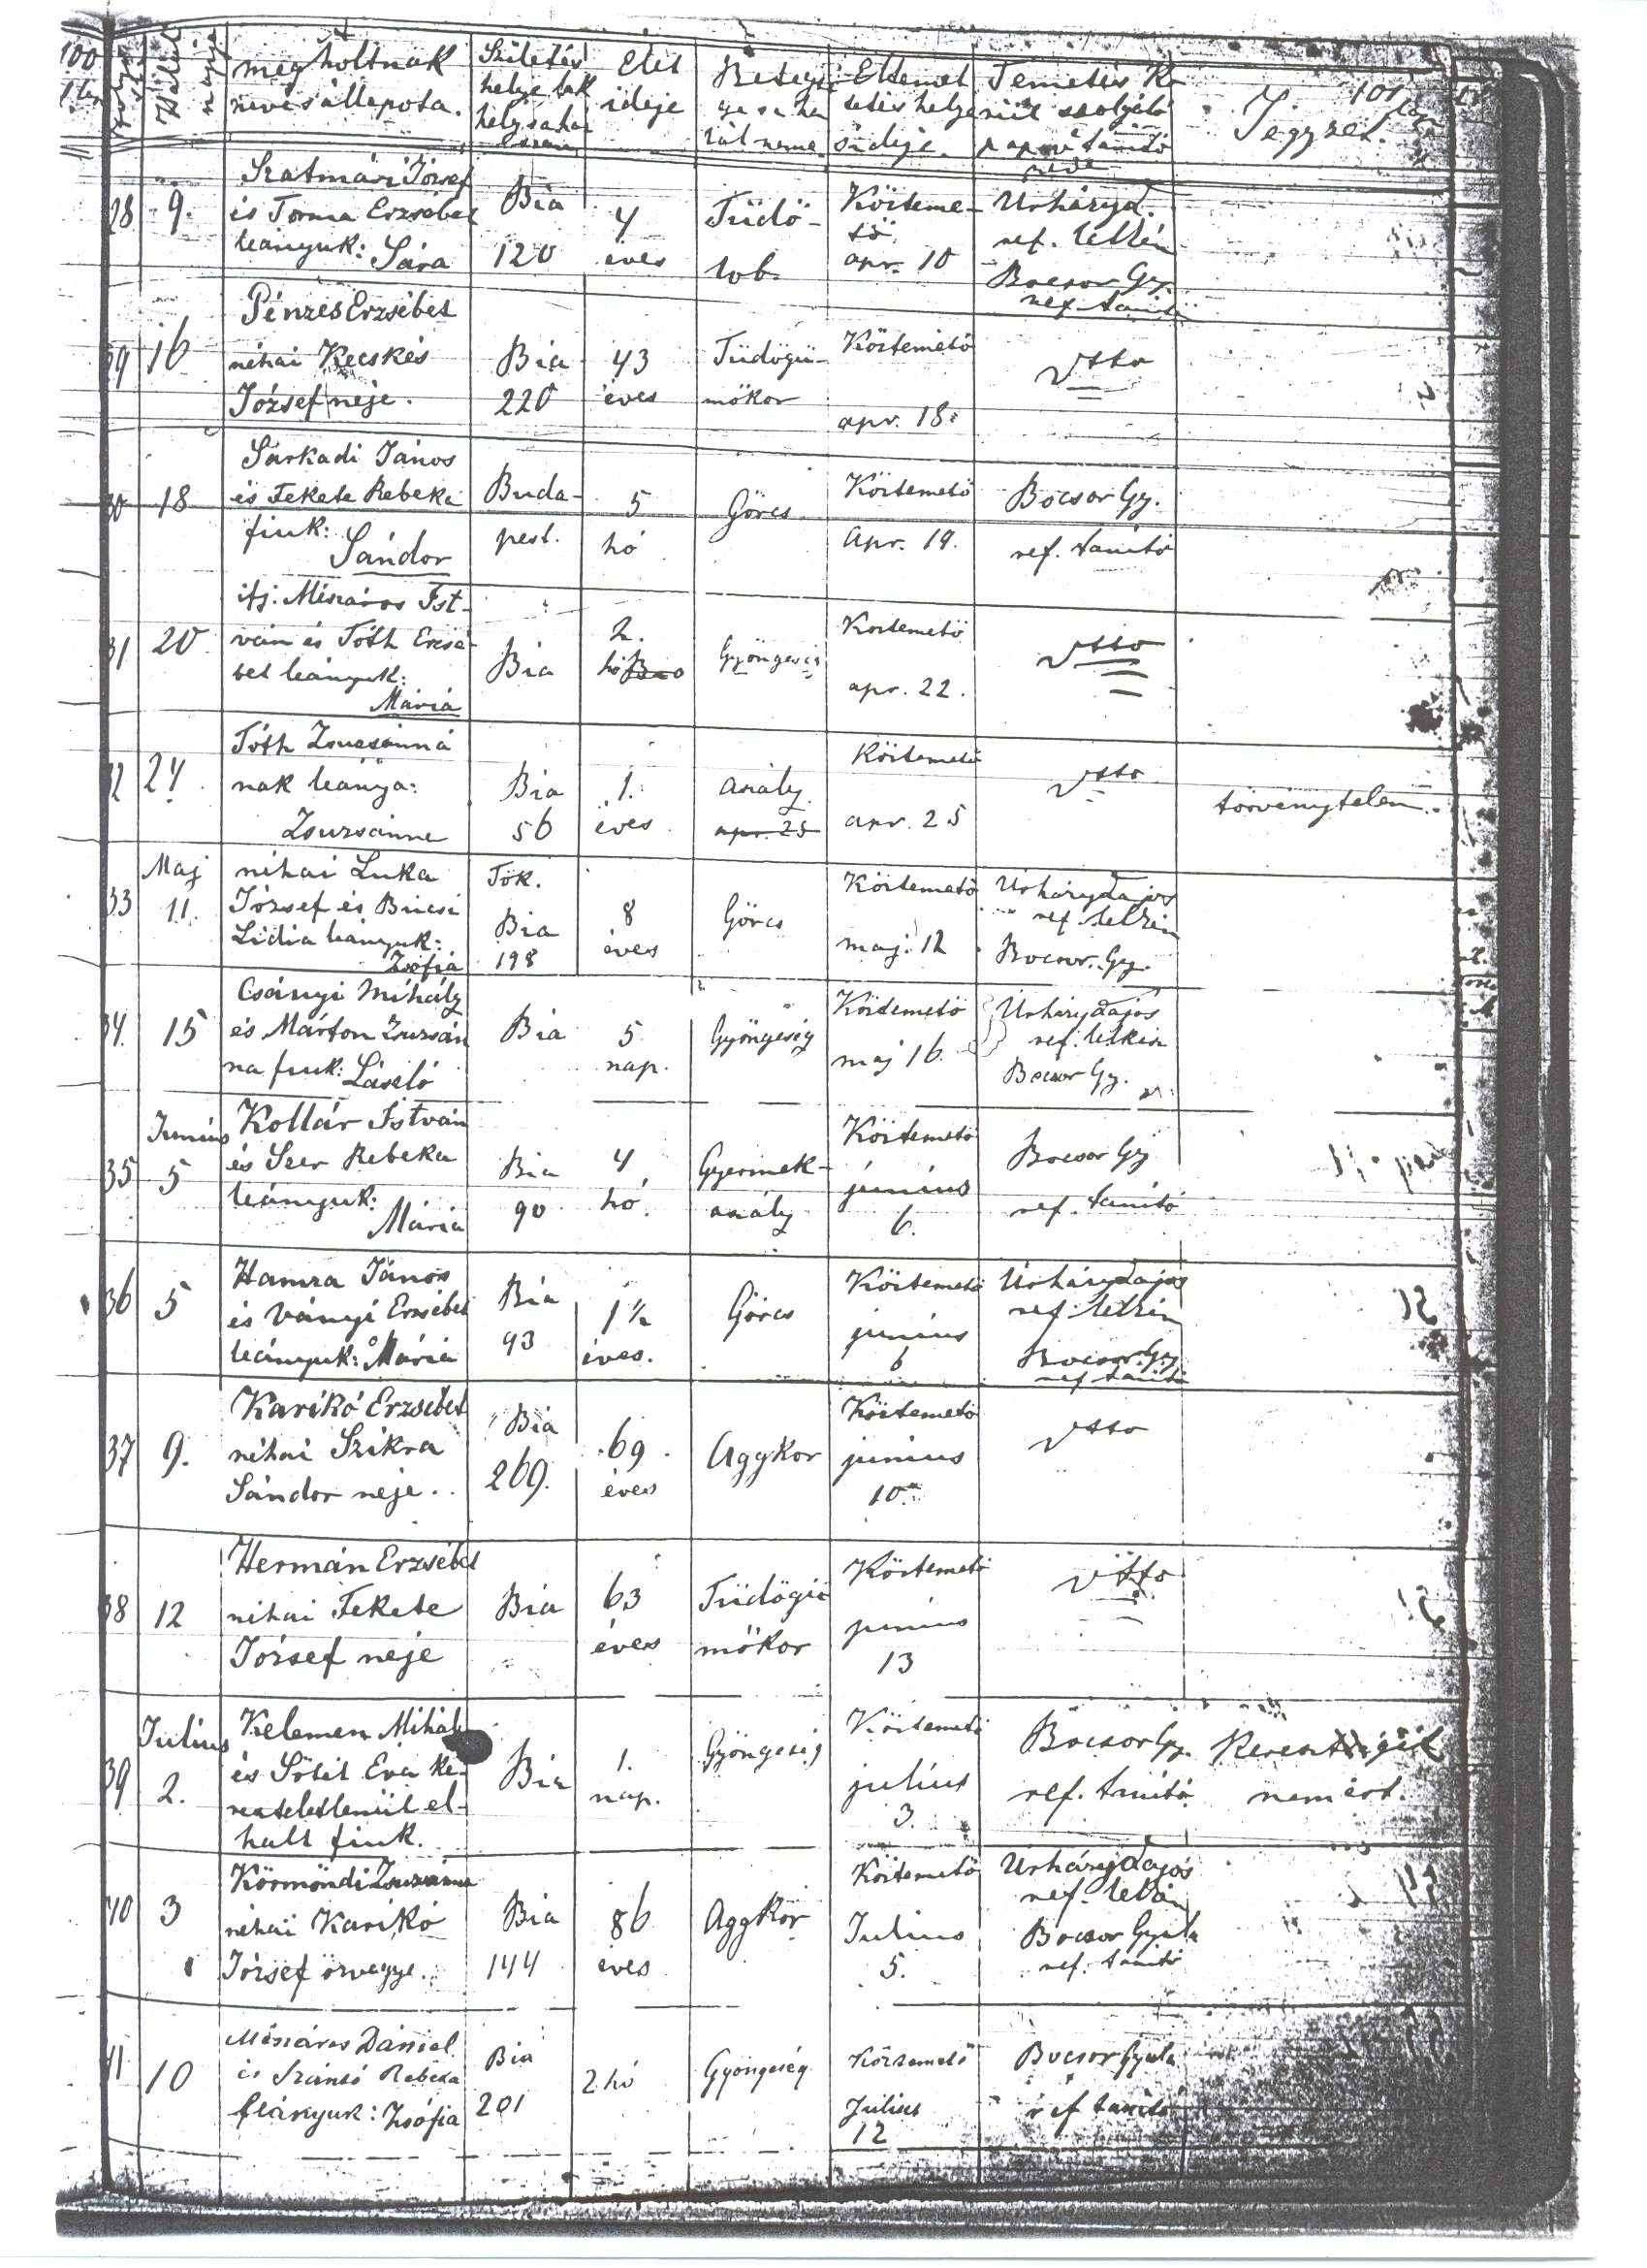 100
101 lap
Halál napja
meghóltnak
neve s állapota.
Születés
helye lak
hely s a ház
szám
Elet
ideje
Betegs
ge s a ha
lál neme
Eltemet
tetés helye
s ideje.
Temetés kö
rül szolgáló
pap vé tánitó
neve
Jegyzet.
28
9.
Szatmári József
és Torma Erzsébet
leányuk: Sára
Bia
120
4
éves
Tüdö-
lob.
Közteme-
tö
apr. 10
Urházy d.
ref. lelkén
Bocsor Gy.
ref. tanító
29
16
Pénzes Erzsébet
néhai Kecskés
József neje.
Bia
220
43
éves
Tüdögü-
mökor
Köztemetö
apr. 18.
Dtto
30
18
Sárkadi János
és Fekete Rebeka
fiuk:
Sándor
Buda-
pest.
5
hó
Görcs
Köztemetö
Apr. 19.
Bocsor Gy.
ref. tanító
31
20
ifj. Mészáros Ist-
ván és Tóth Erzsé-
bet leányuk:
Mária
Bia
2.
hó
Gyöngeség
Köztemetö
apr. 22.
Dtto
32
24
Tóth Zsuzsánná
nak leánya:
Zsuzsánna
Bia
56
1.
éves
aszály
apr. 25
Köztemetö
apr. 25
Dtto
törvénytelen.
33
Maj
11.
néhai Luka
József és Bucsi
Lidia leányuk:
Zsófia
Tök.
Bia
198
8
éves
Görcs
Köztemetö
maj. 12
Urházy Lajos
ref. lelkén
Bocsor. Gy.
34.
15
Csányi Mihály
és Márton Zsuzsán
na fiuk: László
Bia
5
nap.
Gyöngeség
Köztemetö
maj 16.
Urházy Lajos
ref. lelkén
Bocsor Gy.
35
Junius
5
Kollár István
és Szer Rebeka
leányuk:
Mária
Bia
90
4
hó.
Gyermek-
aszály
Köztemetö
június
6.
Bocsor Gy
ref. tanító
36
5
Hamza János
és Ványi Erzsébet
leányuk: Mária
Bia
93
1½
éves.
Görcs
Köztemetö
június
6
Urházy Lajos
ref. lelkén
Bocsor. Gy.
ref tanító
37
9.
Karikó Erzsébet
néhai Szikra
Sándor neje.
Bia
269.
69
éves
Aggkor
Köztemetö
június
10.
Dtto
38
12
Hermán Erzsébet
néhai Fekete
József neje
Bia
63
éves
Tüdögü
mökor
Köztemetö
június
13
Dtto
39
Július
2.
Kelemen Mihály
és Sötét Éva ke-
reszteletlenül el-
halt fiuk.
Bia
1.
nap.
Gyöngeség
Köztemetö
július
3.
Bocsor Gy.
ref. tanító
Keresztséget
nem ért.
40
3
Körmöndi Zsuzsánna
néhai Karikó
József özvegye.
Bia
144
86
éves
Aggkor
Köztemetö
Julius
5.
Urházy Lajos
ref. lelkén
Bocsor Gyula
ref. tanító
41
10
Mészáros Dániel
és Szántó Rebeka
leányuk: Zsófia
Bia
201
2 hó
Gyöngeség
Köztemetö
Julius
12
Bocsor Gyula
ref tanító